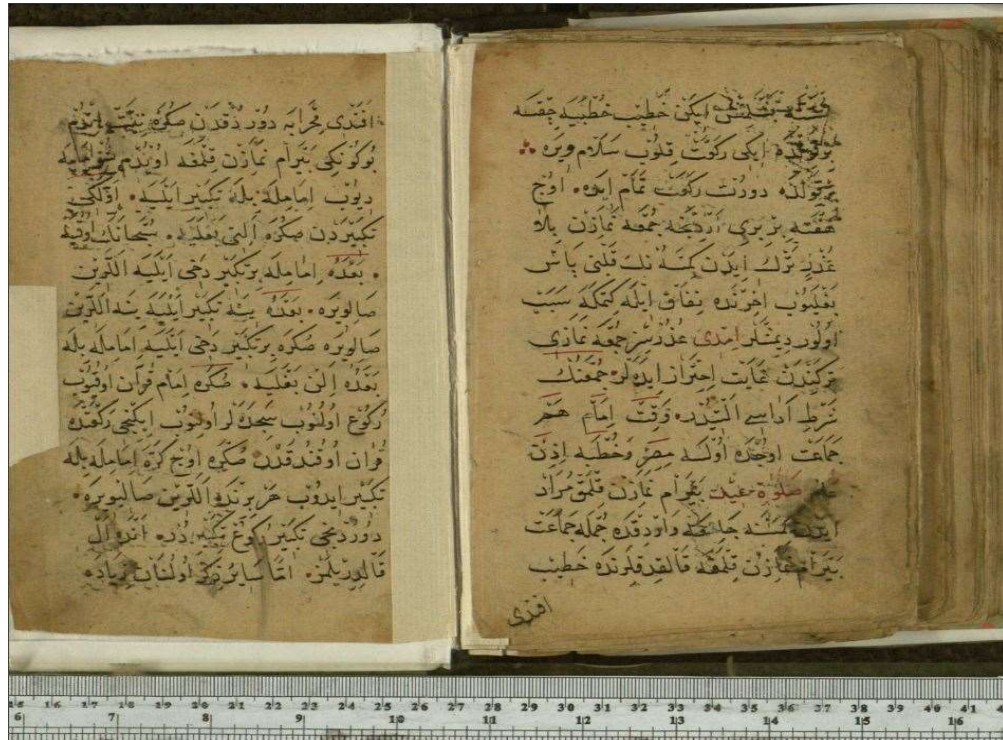 ايكن خطيب خطبيه چقسه
ايكى ركعت قلوب سلام ويره
دورت ركعت تمام ايده اوچ
هفته بربرى اردنجه جمعه نمازن بلا
عذر ترك ايدن كمسه نك قلبى پاس
بغليوب اخرنده نفاق ايله كتمكه سبب
اولور ديمشلر امدى عذرسز جمعه نمازى
تركندن غايت احتراز ايده لر جمعنك
شرط اداسى التيدر وقت امام هم
جماعت اوچده اوله مصر وخطبه اذن
صلوة عيد بيرام نمازن قلمق مراد
ايدن كمسنه جامعه واردقده جمله جماعت
بيرام نمازن قلمغه قالقدقلرنده خطيب
افندى
افندى محرابه دوردقدن صكره نيت ايتدم
بوكونكى بيرام نمازن قلمغه اويدم
ديوب امامله بله تكبير ايليه اولكى
تكبيردن صكره الن بغليه سبحانك اوقيه
بعده امامله بر تكبير دخى ايليه اللرين
صاليويره بعده ينه تكبير ايليه ينه اللرين
صاليويره صكره بر تكبير دخى ايليه امامله بله
بعده الن بغليه صكره امام قران اوقيوب
ركوع اولنوب سجده لر اولنوب ايكنجى ركعتده
قران اوقندقدن صكره اوچ كره امامله بله
تكبير ايدوب هر برنده اللرين صاليويره
دوردنجى تكبير ركوع تكبيريدر انده ال
قالدرلمز اما ساير اولنان زياده